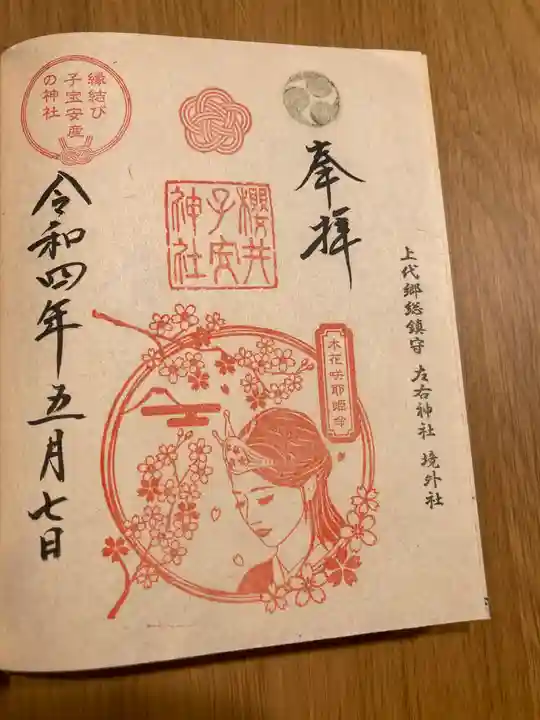 奉拝
上代郷総鎮守 左右神社 境外社
縁結び
子宝安産
の神社
櫻井
子安
神社
木花咲耶姫命
令和四年五月七日